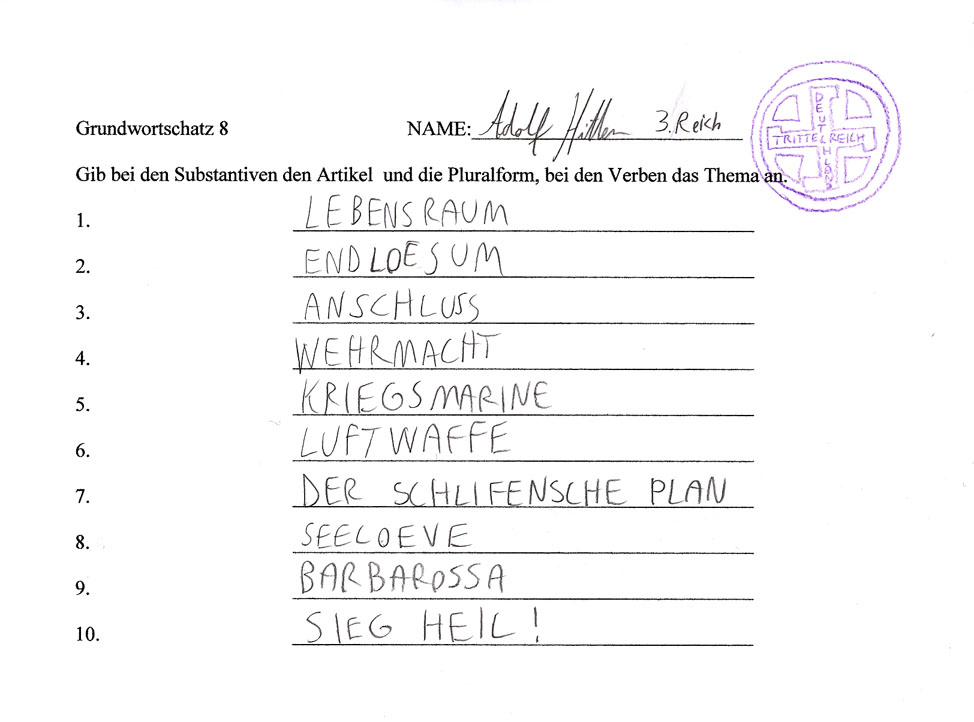 Grundwortschatz 8 NAME: Adolf Hitler 3. Reich
DEUTCHLAND
TRITTEL REICH
Gib bei den Substantiven den Artikel und die Pluralform, bei den Verben das Thema an.
1. LEBENSRAUM
2. ENDLOESUM
3. ANSCHLUSS
4. WEHRMACHT
5. KRIEGSMARINE
6. LUFTWAFFE
7. DER SCHLIFENSCHE PLAN
8. SEELOEVE
9. BARBAROSSA
10. SIEG HEIL!